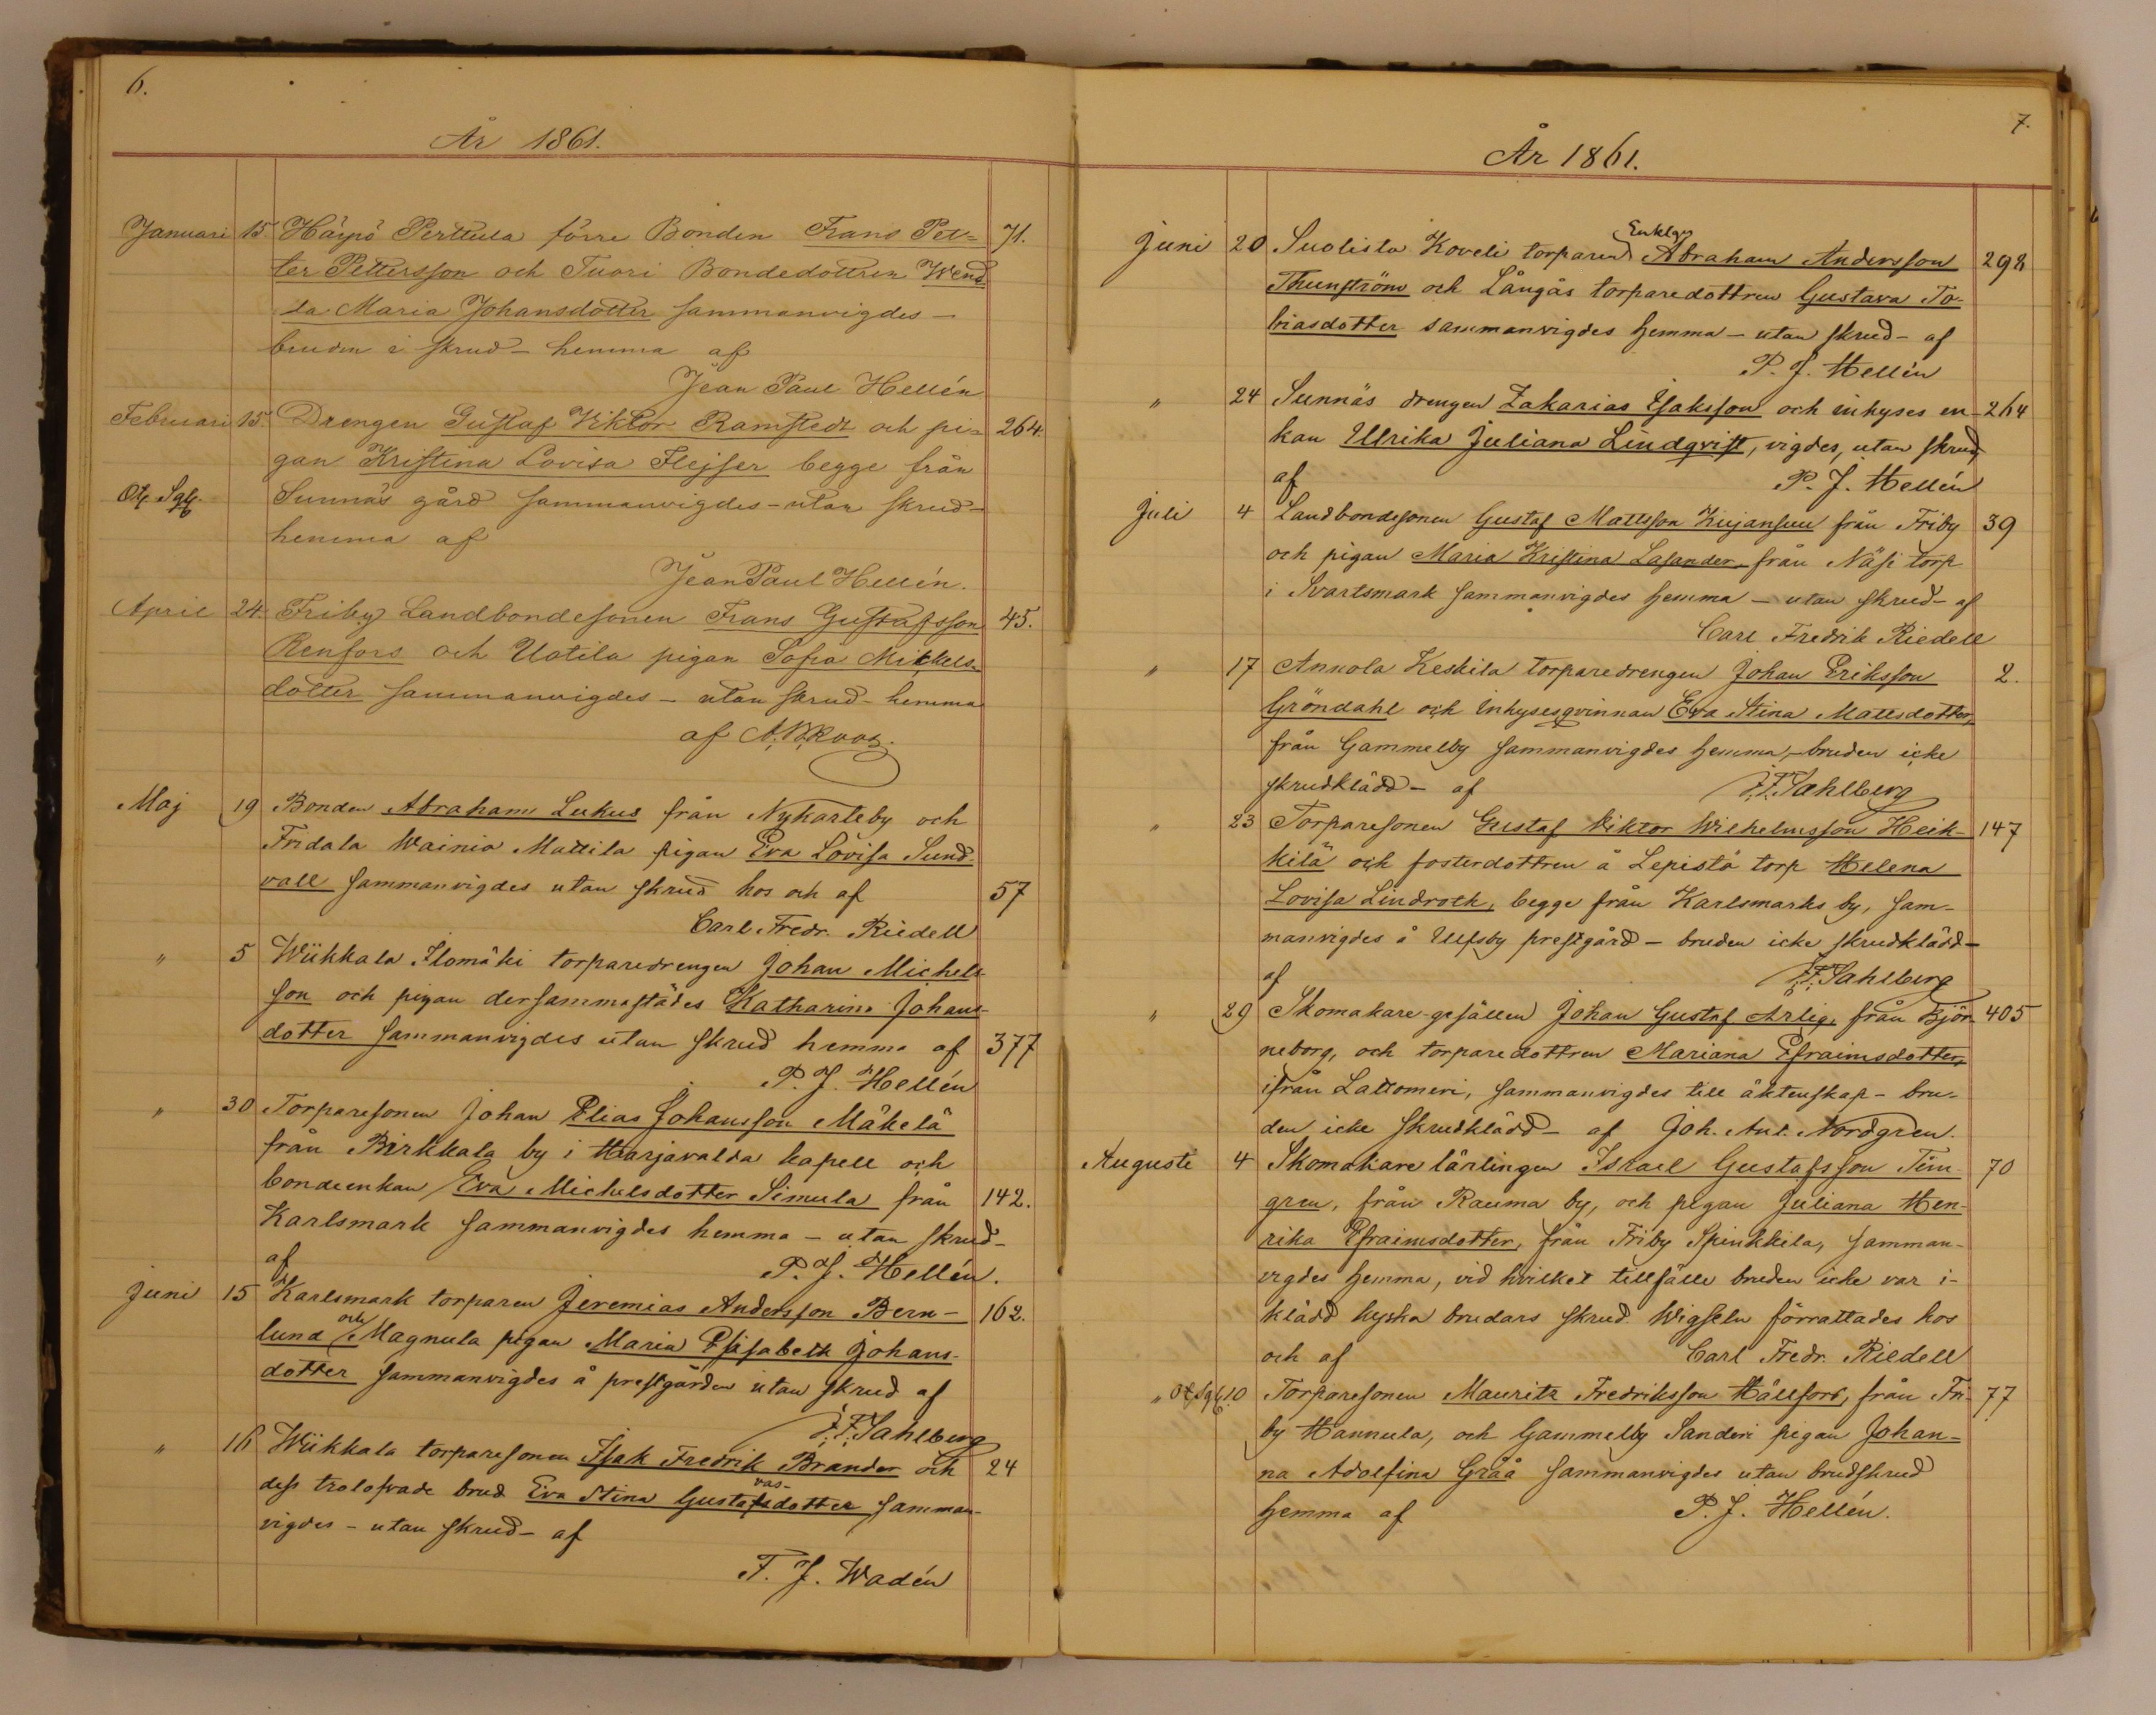 6.
År 1861.
Januari 15 Härpö Perttula förre Bonden Frans Pet- 71.
ter Pettersson och Tuori Bondedottren Wend
la Maria Johansdotter sammanvigdes –
bruden i skrud – hemma af
Jean Paul Hellén
Februari 15 Drengen Gustaf Viktor Ramstedt och pi- 264.
gan Kristina Lovisa Flejser begge från
Sunnäs gård sammanvigdes – utan skrud –
hemma af
Jean Paul Hellén.
April 24. Friby Landbondesonen Frans Gustafsson 45.
Renfors och Uotila pigan Sofia Mikkels-
dotter sammanvigdes – utan skrud – hemma
af
Maj 19 Bonden Abraham Lukus från Nykarleby och
Fridala Wainio Mattila pigan Eva Lovisa Sund-
vall sammanvigdes utan skrud hos och af 57
Carl Fredr. Riedell
" 5 Wiikkala Ilomäki torparedrengen Johan Michels
son och pigan dersammastädes Katharina Johans-
dotter sammanvigdes utan skrud hemma af 377
P. J. Hellén
" 30 Torparesonen Johan Elias Johansson Mäkelä
från Pirkkala by i Harjavalda kapell och
bondeenkan Eva Michelsdotter Simula från 142.
Karlsmark sammanvigdes hemma – utan skrud –
af P. J. Hellén.
Juni 15 Karlsmark torparen Jeremias Andersson Bern- 162.
lund och Magnula pigan Maria Elisabeth Johans-
dotter sammanvigdes å prestgården utan skrud af
F. F. Sahlberg
" 16 Wiikkala torparesonen Isak Fredrik Brander och 24
dess trolofvade brud Eva Stina Gustafsdotter samman-
vigdes – utan skrud – af
F. J. Wadén
7.
År 1861.
Juni 20 Suolisto Koveli torparen Enkling Abraham Andersson 298
Thunström och Långås torparedottren Gustava To-
biasdotter sammanvigdes hemma – utan skrud – af
P. J. Hellén
" 24 Sunnäs drengen Zakarias Isaksson och inhyses en- 264
kan Ulrika Juliana Lindqvist, vigdes, utan skrud
af P. J. Hellén
Juli 4 Landbondesonen Gustaf Mattsson Kujansuu från Friby 39
och pigan Maria Kristina Lasander från Näsi torp
i Svartsmark sammanvigdes hemma – utan skrud – af
Carl Fredrik Riedell
" 17 Annola Keskila torparedrengen Johan Eriksson 2.
Gröndahl och Inhysesqvinnan Eva Stina Mattsdotter,
från Gammelby sammanvigdes hemma, – bruden icke
skrudklädd – af F. F. Sahlberg
" 23 Torparesonen Gustaf Viktor Wilhelmsson Heik- 147
kilä och fosterdottren å Lepistö torp Helena
Lovisa Lindroth, begge från Karlsmarks by, sam-
manvigdes å Ulfsby prestgård – bruden icke skrudklädd –
af F. F. Sahlberg
" 29 Skomakare-gesällen Johan Gustaf Arlig, från Björ- 405
neborg, och torparedottren Mariana Efraimsdotter,
ifrån Lattomeri, sammanvigdes till äktenskap – bru-
den icke skrudklädd – af Joh. Ant. Nordgren.
Auguste 4 Skomakare lärlingen Israel Gustafsson Tim- 70
gren, från Rauma by, och pigan Juliana Hen-
rika Efraimsdotter, från Friby Spinkkila, samman-
vigdes hemma, vid hvilket tillfälle bruden icke var i-
klädd kyska brudars skrud. Wigseln förrattades hos
och af Carl Fredr. Riedell
" 10 Torparesonen Mauritz Fredriksson Hällfors, från Fri- 77
by Hannula, och Gammelby Sanderi pigan Johan-
na Adolfina Gråå sammanvigdes utan brudskrud
hemma af P. J. Hellén.